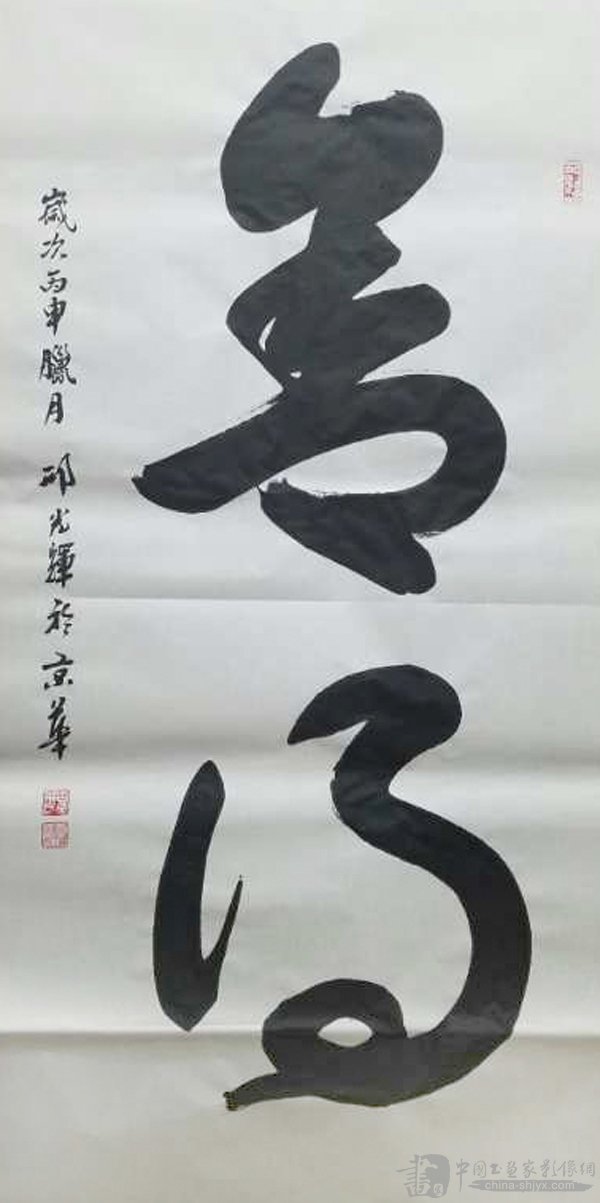 舍得
歲次丙申臘月 邱光輝於京華
中国书画家影像網
china-shjyx.com